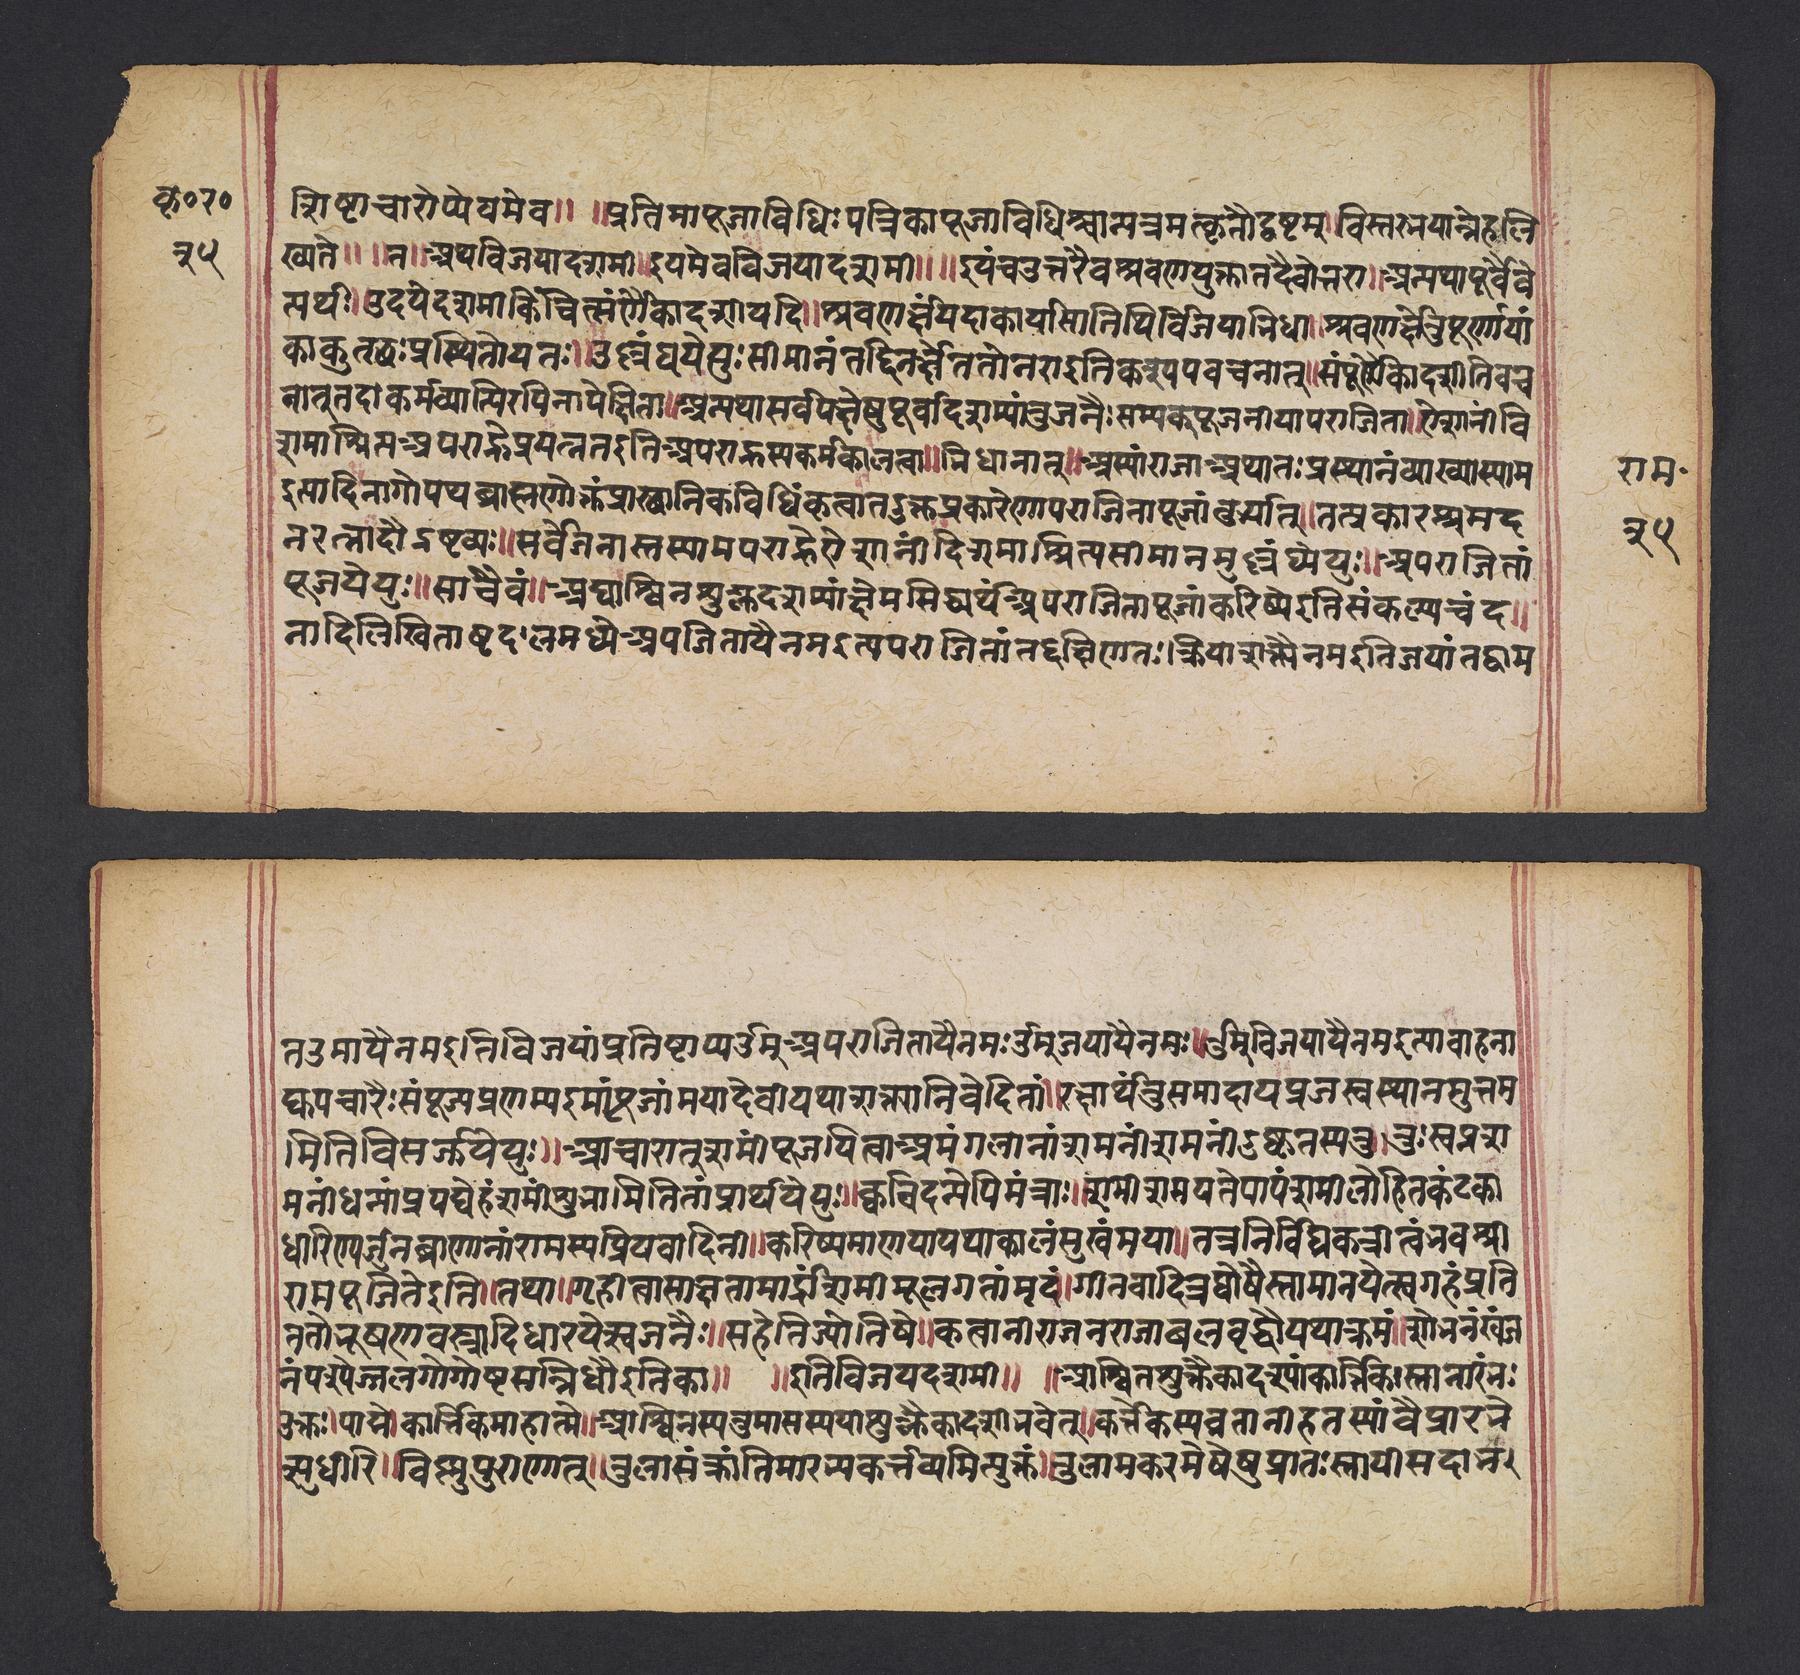 कृ०र०
२५
शिष्टाचारोप्येवमेव॥ ॥प्रतिमापूजाविधिःपत्रिकापूजाविधिश्चान्यत्रमत्कृतौद्रष्टव्यम्॥विस्तरभयान्नेहलि
ख्यते॥ ॥न॥अथविजयादशमी॥इयमेवविजयादशमी॥ ॥इयंचउत्तरैवश्रवणयुक्तातदैवोत्तरा॥अन्यथापूर्वैवे
त्यर्थः॥उदयेदशमीकिंचित्संपूर्णैकादशीयदि॥श्रवणर्क्षंयदाकायसातिथिर्विजयाभिधा॥श्रवणर्क्षेतुपूर्णायां
काकुत्स्थःप्रस्थितोयतः॥उल्लंघयेयुःसीमानंतद्दिनर्क्षेततोनराइतिकश्यपवचनात्॥संपूर्णैकादशीतिवच
नात्नुतदाकर्मव्याप्तिरपिनापेक्षिता॥अन्यथासर्वपक्षेषुपूर्वादशम्यांतुजनैःसम्यक्पूजनीयापराजिता॥ऐशानींदि
शमाश्रित्यअपराह्नेप्रयत्नतइतिअपराह्नस्यकर्मकालत्वा॥भिधानात्॥अस्यांराजाअथातःप्रस्थानंव्याख्यास्याम
इत्यादिनागोपथब्राह्मणोक्तंप्रास्थानिकविधिंकृत्वातदुक्तप्रकारेणापराजितापूजांकुर्यात्॥तत्प्रकारश्चमद
नरत्नादौद्रष्टव्यः॥सर्वेजनास्तस्यामपराह्नेऐशानींदिशमाश्रित्यसीमानमुल्लंघ्येयुः॥अपराजितां
पूजयेयुः॥साचैवं॥अद्याश्विनशुक्लदशम्यांक्षेमसिद्ध्यर्थंअपराजितापूजांकरिष्येइतिसंकल्प्यचंद॥
नादिलिखिताष्टदलमध्येअपजितायैनमइत्यपराजितांतद्दक्षिणेतः॥क्रियाशक्त्यैनमइतिजयांतद्वाम
राम॰
२५
तउमायैनमइतिविजयांप्रतिष्टाप्यॐम्अपराजितायैनमःॐम्जयायैनमः॥ॐम्विजयायैनमइत्यावाहना
द्युपचारैःसंपूज्यप्रणम्यइमांपूजांमयादेवीयथाशक्त्यानिवेदितां॥रक्षार्थंतुसमादायव्रजस्वस्थानमुत्तम
मितिविसर्ज्जयेयुः॥आचारात्शमींपूजयित्वाअमंगलानांशमनींशमनींदुष्कृतस्यतु॥दुःस्वप्नश
मनींधन्यांप्रपद्येहंशमींशुभामितितांप्रार्थयेयुः॥क्वचिदन्येपिमंत्राः॥शमीशमयतेपापंशमीलोहितकंटका
धारिण्यर्जुनबाणानांरामस्यप्रियवादिनी॥करिष्यमाणयाययाकालंसुखंमया॥तत्रनिर्विघ्नकर्त्रीत्वंभवश्री
रामपूजितेइति॥तथा॥गृहीत्वासाक्षतामार्द्रांशमीमूलगतांमृदं॥गीतवादित्रघोषैस्तामानयेत्स्वगृहंप्रति
ततोभूषणवस्त्रादिधारयेत्स्वजनैः॥सहेतिज्योतिषे॥कृत्वानीराजनराजाबलवृद्धौयथाक्रमं॥शोभनंखंज
नंपश्येज्जलगोगोष्टसन्निधौइतिका॥ ॥इतिविजयदशमी॥ ॥आश्विनशुक्लैकादश्यांकार्त्तिकिस्नानारंभः
उक्तः॥पाद्मे॥कार्त्तिकमाहात्म्ये॥आश्विनस्यतुमासस्ययाशुक्लैकादशीभवेत्॥कर्त्तिकस्यव्रतानीहतस्यांवैप्रारभे
त्सुधीरि॥विष्णुपुराणेतु॥तुलासंक्रांतिमारभ्यकर्त्तव्यमित्युक्तं॥तुलामकरमेषेषुप्रातःस्नायीसदानर